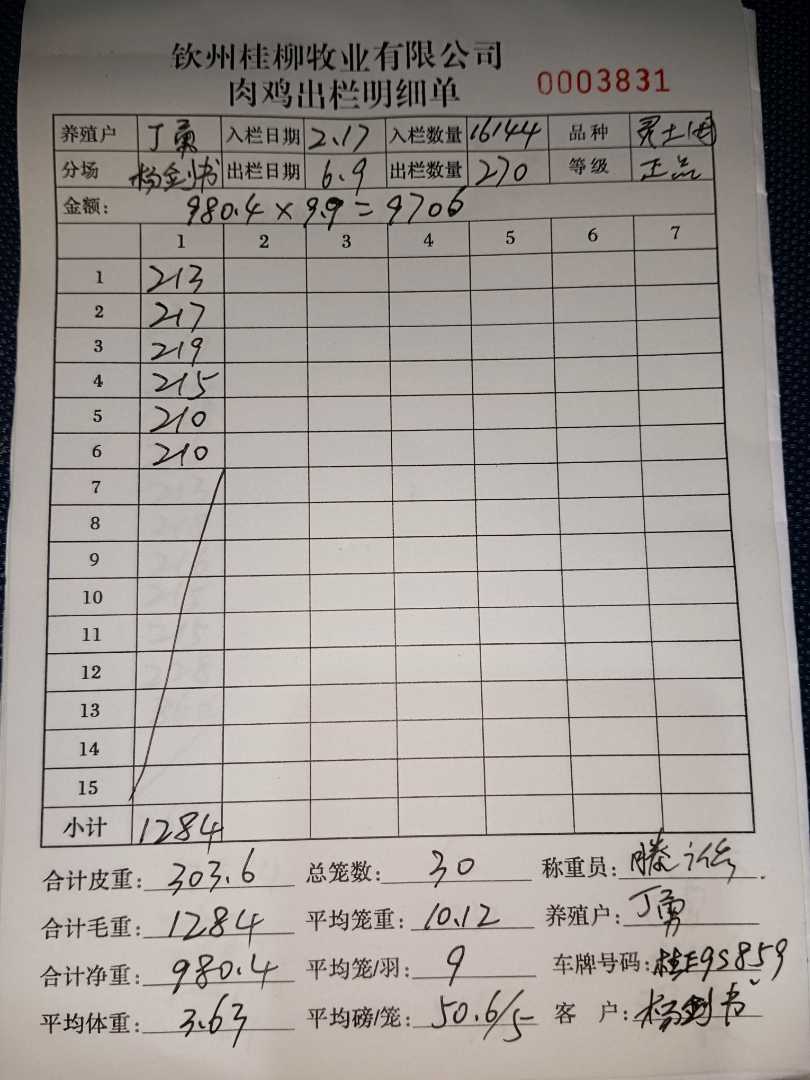 钦州桂柳牧业有限公司
肉鸡出栏明细单 0003831
养殖户 丁勇 入栏日期 2.17 入栏数量 16144 品种
分场 出栏日期 6.9 出栏数量 270 等级 正品
金额: 980.4 × 9.9 = 9706
1 2 3 4 5 6 7
1 213
2 217
3 219
4 215
5 210
6 210
7
8
9
10
11
12
13
14
15
小计 1284
合计皮重: 303.6 总笼数: 30 称重员:
合计毛重: 1284 平均笼重: 10.12 养殖户: 丁勇
合计净重: 980.4 平均笼/羽: 9 车牌号码: 桂E9S859
平均体重: 3.63 平均磅/笼: 50.6/5 客 户: